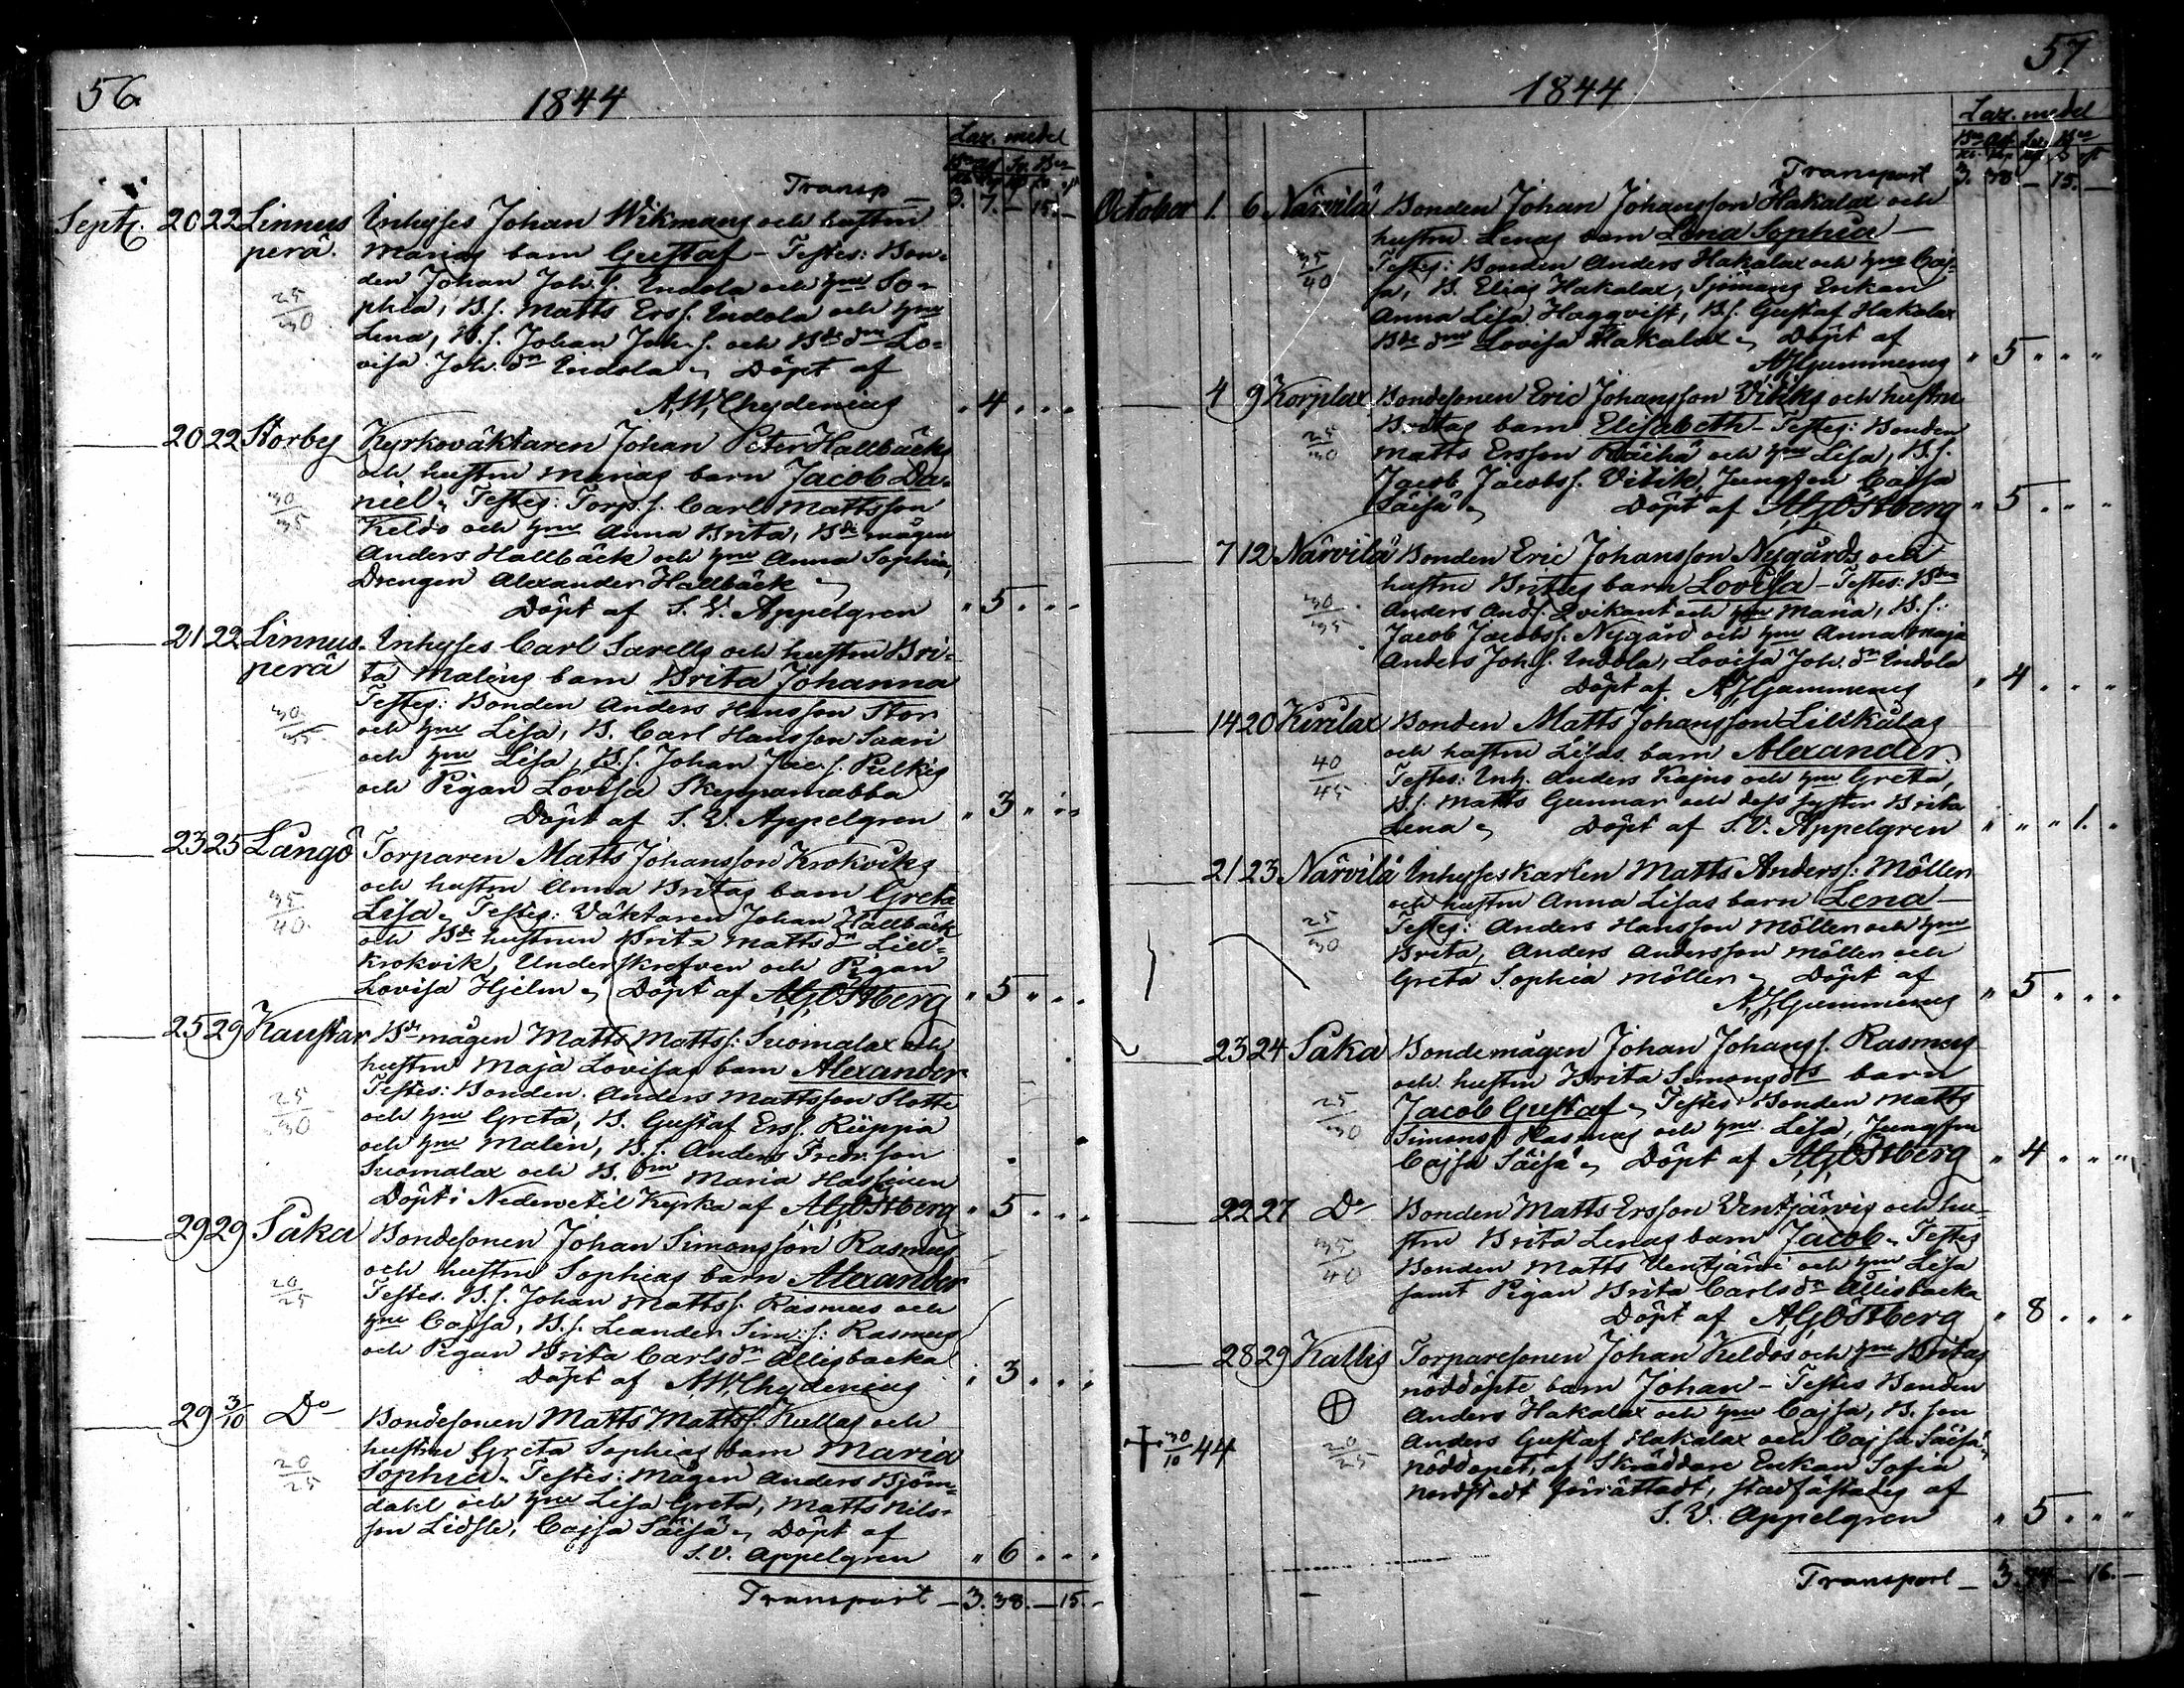 56.
1844
Laz. medel
Transp – 3. 7. – 15. –
Septr. 20 22 Linnus Inhyses Johan Wikmans och hustru
perä. Marias barn Gustaf – Testes: Bon-
den Johan Joh. s. Indola och hru So-
25/30 phia, B.s. Matts Erss. Indola och hru
Lena, B.s. Johan Joh. s. och Bde dna Lo-
visa Joh. dr Indola. Döpt af
A.W. Chydenius " 4 . . .
20 22 Storby Kyrkoväktaren Johan Peter Hallbäcks
och hustru Marias barn Jacob Da-
30/35 niel. Testes: Torp. s. Carl Mattsson
Keldo och hru Anna Brita, Bde mågen
Anders Hallbäck och hru Anna Sophia,
Drengen Alexander Hallbäck
Döpt af S. V. Appelgren " 5 . . .
21 22 Linnus- Inhyses Carl Sarells och hustru Bri-
perä ta Malins barn Brita Johanna
Testes: Bonden Anders Hansson Stor
30/35 och hru Lisa, B. Carl Hansson Saari
och hru Lisa, B.s. Johan Jac. s. Pulkis
och Pigan Lovisa Skepparnabba
Döpt af S. V. Appelgren " 3 " . .
23 25 Långö Torparen Matts Johansson Krokviks
och hustru Anna Britas barn Greta
35/40 Lisa. Testes: Väktaren Johan Hallbäck
och Bde hustrun Brita Mattsdr Lill-
krokvik, Underskrefven och Pigan
Lovisa Hjelm. Döpt af A.G. Östberg " 5 " . .
25 29 Kaustar Bdemågen Matts Mattss. Suomalax och
hustru Maja Lovisas barn Alexander
25/30 Testes: Bonden Anders Mattsson Slotte
och hru Greta, B. Gustaf Erss. Riippa
och hru Malin, B.s. Anders Fredr. son
Suomalax och B. dna Maria Hassinen
Döpt i Nedervetil Kyrka af A.G. Östberg " 5 . . .
29 29 Såka Bondesonen Johan Simonsson Rasmus
och hustru Sophias barn Alexander
20/25 Testes. B.s. Johan Mattss. Rasmus och
hru Cajsa, B.s. Leander Sim. s: Rasmus
och Pigan Brita Carlsdr Allisbacka
Döpt af A.W. Chydenius " 3 . . .
29 3/10 Do Bondesonen Matts Mattss. Kullas och
hustru Greta Sophias barn Maria
20/25 Sophia. Testes: Mågen Anders Björn-
dahl och hru Lisa Greta, Matts Nils-
son Lidste, Cajsa Säisä. Döpt af
S. V. Appelgren " 6 . . .
Transport – 3. 38. – 15. –
57
1844
Laz. medel
Transport 3. 38 – 15. –
October 1. 6 Närvilä Bonden Johan Johansson Hakalax och
hustru Lenas barn Lena Sophia –
35/40 Testes: Bonden Anders Hakalax och hru Caj-
sa, B. Elias Hakalax, Sjömans Enkan
Anna Lisa Haggqvist, B.s. Gustaf Hakalax
Bde dna Lovisa Hakalax. Döpt af
A.J. Gummerus " 5 . . "
4 9 Korplax Bondesonen Eric Johansson Vitiks och hustru
25/30 Britas barn Elisabeth – Testes: Bonden
Matts Ersson Räihä och hru Lisa, B.s.
Jacob Jacobss. Vitik, Jungfrun Cajsa
Säisä. Döpt af A.G. Östberg " 5 . . .
7 12 Närvilä Bonden Eric Johansson Nygårds och
hustru Brittas barn Lovisa – Testes: Bden
30/35 Anders Ands. Qvikant och hru Maria, B.s.:
Jacob Jacobss. Nygård och hru Anna Maja
Anders Joh. s. Indola, Lovisa Joh. dr Indola
Döpt af A.J. Gummerus " 4 . . .
14 20 Kirilax Bonden Matts Johansson Lillkålas
och hustru Lisas barn Alexander.
40/45 Testes: Inh. Anders Kajus och hru Greta,
B.s. Matts Gunnar och dess syster Brita
Lena. Döpt af S. V. Appelgren " " " 1. "
21 23 Närvilä Inhyses Karlen Matts Anderss: Möller
och hustru Anna Lisas barn Lena –
25/30 Testes: Anders Hansson Möller och hru
Brita, Anders Andersson Möller och
Greta Sophia Möller. Döpt af
A.J. Gummerus " 5 . . .
23 24 Såka Bondemågen Johan Johanss. Rasmus
och hustru Brita Simonsdrs barn
25/30 Jacob Gustaf. Testes: Bonden Matts
Simonss. Rasmus och hru Lisa, Jungfrun
Cajsa Säisä. Döpt af A.G. Östberg " 4 . . .
22 27 Do Bonden Matts Ersson Ventjärvis och hu-
35/40 stru Brita Lenas barn Jacob. Testes
Bonden Matts Ventjärvi och hru Lisa
samt Pigan Brita Carlsdr Allisbacka
Döpt af A.G. Östberg " 8 . . .
28 29 Kallis Torparesonen Johan Keldos och hru Britas
nöddöpte barn Johan – Testes Bonden
Anders Hakalax och hru Cajsa, B. son
† 30/10 44 20/25 Anders Gustaf Hakalax och Cajsa Säisä,
nöddopet, af Skräddare Enkan Sofia
Nordstedt förrättadt, stadfästades af
S. V. Appelgren " 5 . " "
Transport – 3. 74 – 16. –